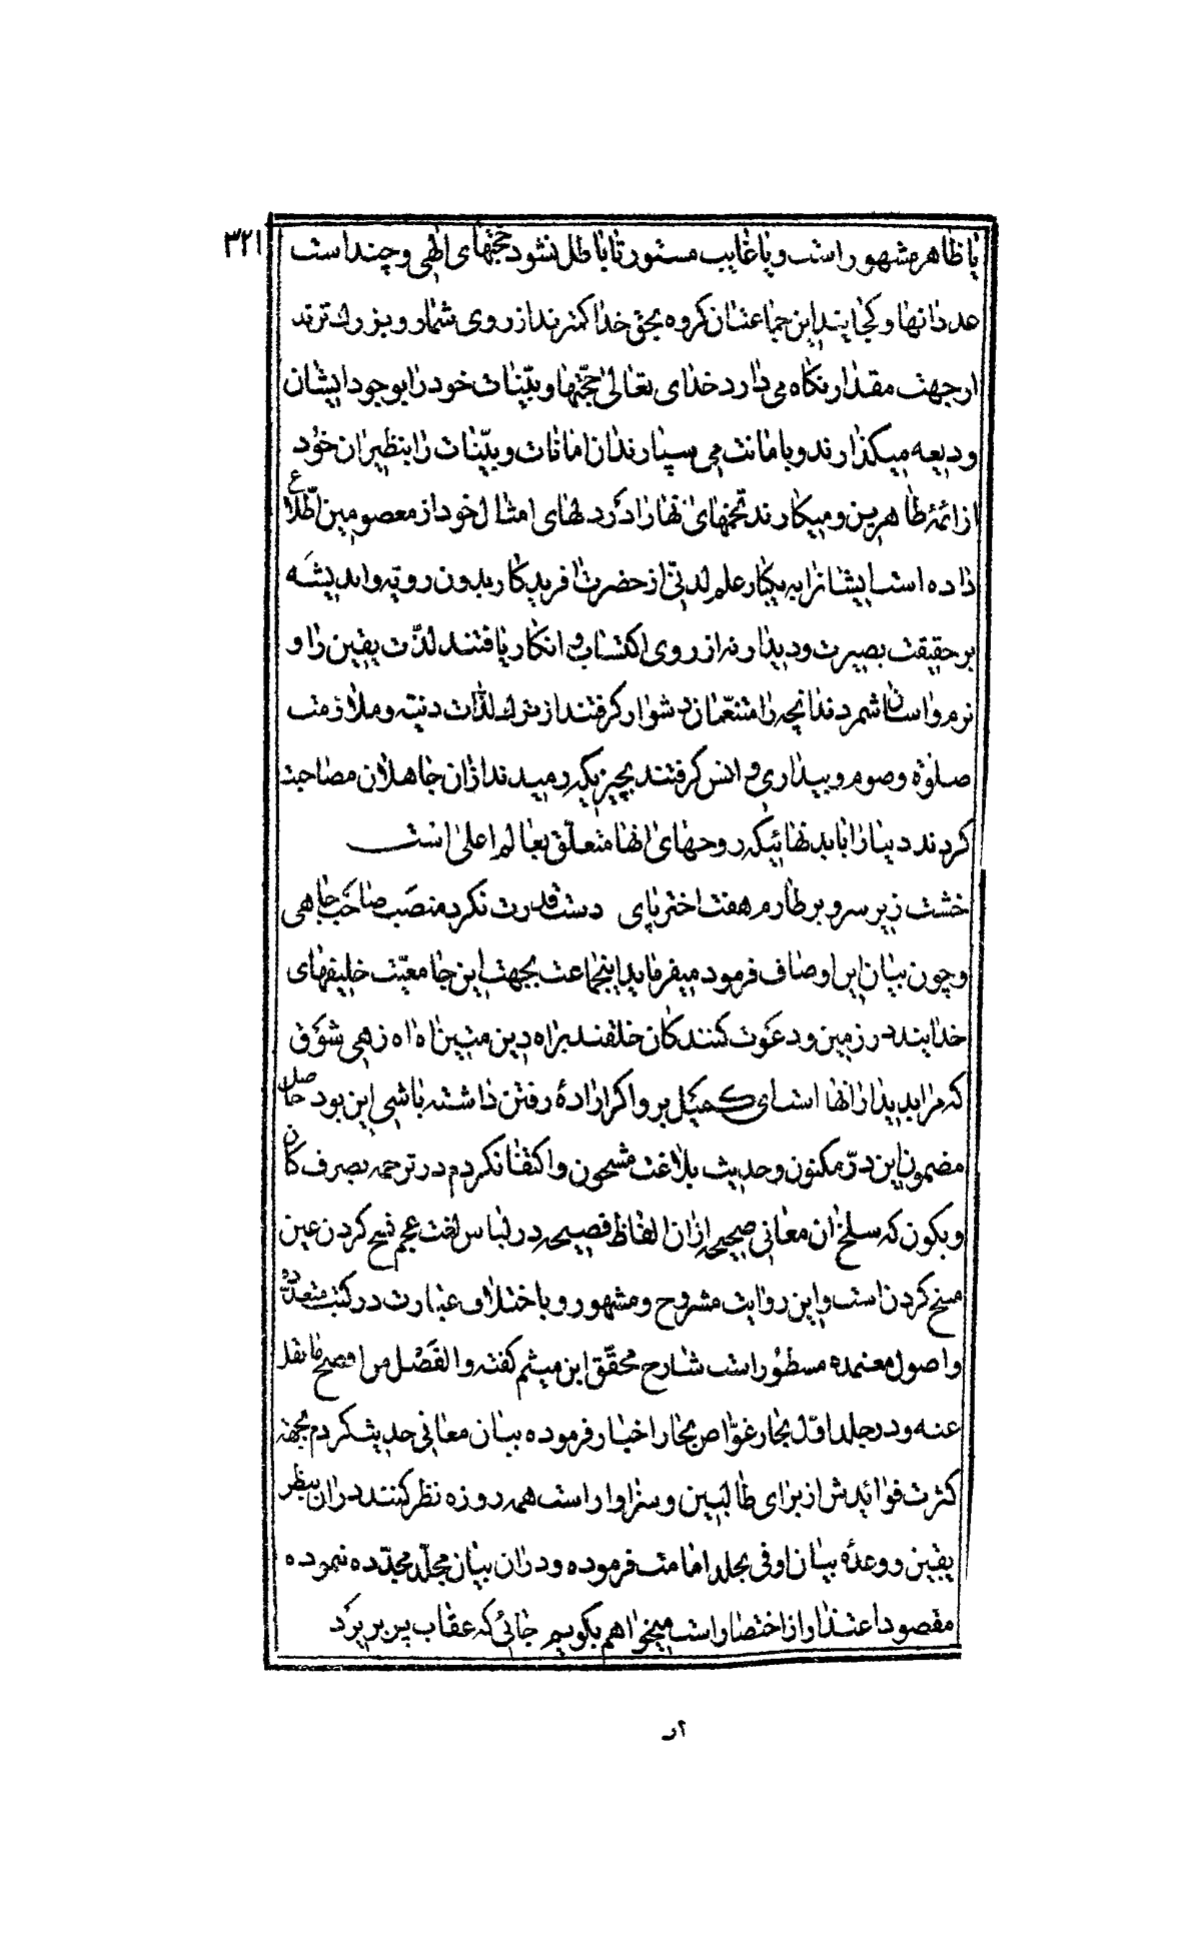 ۳۲۱
یا ظاهر مشهور است و یا غایب مستور تا باطل نشود حجتهای الهی و چند است
عدد انها و کجایند این جماعت ان کروه بحق خدا کمترند از روی شمار و بزرك ترند
ار جهت مقدار نکاه می دارد خدای تعالی حجّتها و بیّنات خود را بوجود ایشان
ودیعه میکذارند و بامانت می سپارند ان امانات و بیّنات را بنظیران خود
از ائمّۀ طاهرین و میکارند تخمهای انها را در دلهای امثال خود از معصومین اطّلاع
داده است ایشانرا به یکبار علم لدنّی از حضرت افریدکار بدون رویّه و اندیشه
بر حقیقت بصیرت و دیدار نه از روی اکتساب و انکار یافتند لذّت یقین را و
نرم و اسان شمردند انچه را متنعّمان دشوار کرفتند از ترك لذّات دنیّه و ملازمت
صلوة و صوم و بیداری و انس کرفتند بچیزیکه رمیدند ازان جاهلان مصاحبت
کردند دنیا را با بدنهائیکه روحهای انها متعلّق بعالم اعلی است
خشت زیر سر و بر طارم هفت اختر پای دست قدرت نکر و منصب صاحب جاهی
و چون بیان این اوصاف فرمود میفرماید اینجماعت بجهت این جامعیّت خلیفهای
خدایند در زمین و دعوت کنندکان خلقند براه دین متین اه اه زهی شوق
که مرا بدیدار انها است ای کمیل برو اکر ارادۀ رفتن داشته باشی این بود حاصل
مضمون این درّ مکنون و حدیث بلاغت مشحون و اکتفا نکردم در ترجمه بصرف کان
و یکون که سلخ ان معانی صحیحه ازان الفاظ فصیحه در لباس لغت عجم نسخ کردن عین
مسخ کردن است و این روایت مشروح و مشهور و باختلاف عبارت در کتب متعدّده
و اصول معتمده مسطور است شارح محقّق ابن میثم کفته و الفصل من افصح ما نقل
عنه و در جلد اوّل بحار غوّاص بحار اخبار فرموده بیان معانی حدیث کردم بجهة
کثرت فوائدش از برای طالبین و سزاوار است همه روزه نظر کنند دران بنظر
یقین و وعدۀ بیان اوفی بجلد امامت فرموده و دران بیان مجلّد مجدّده نموده
مقصود اعتذار از اختصار است میخواهم بکویم جائی که عقاب پر بریزد
از